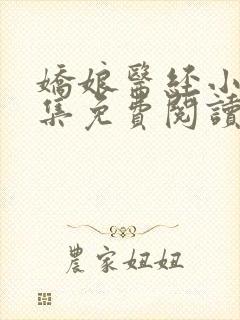 嬌娘醫经小
集免費閱讀
農家妞妞